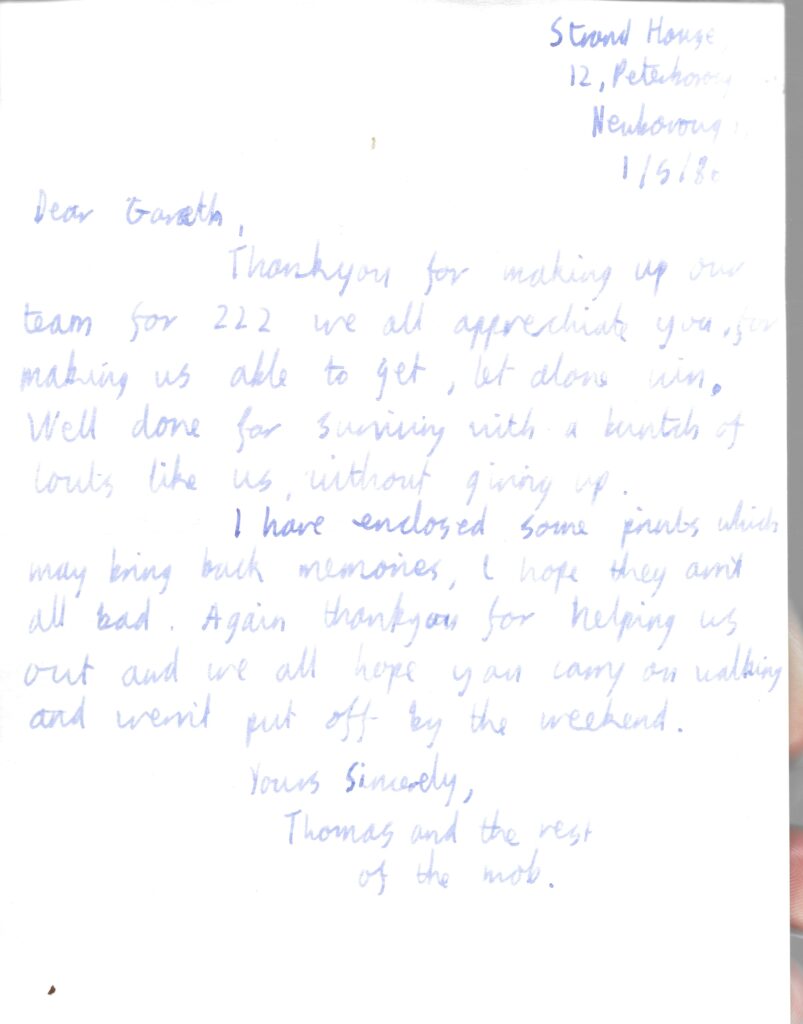 Strand House,
12, Peterboroug
Newborough,
1/5/86
Dear Gareth,
Thankyou for making up our
team for 222 we all apprechiate you, for
making us able to get, let alone win.
Well done for surviving with a buntch of
louts like us, without giving up.
I have enclosed some prints which
may bring back memories, I hope they arn't
all bad. Again thankyou for helping us
out and we all hope you carry on walking
and weren't put off by the weekend.
Yours Sincerely,
Thomas and the rest
of the mob.